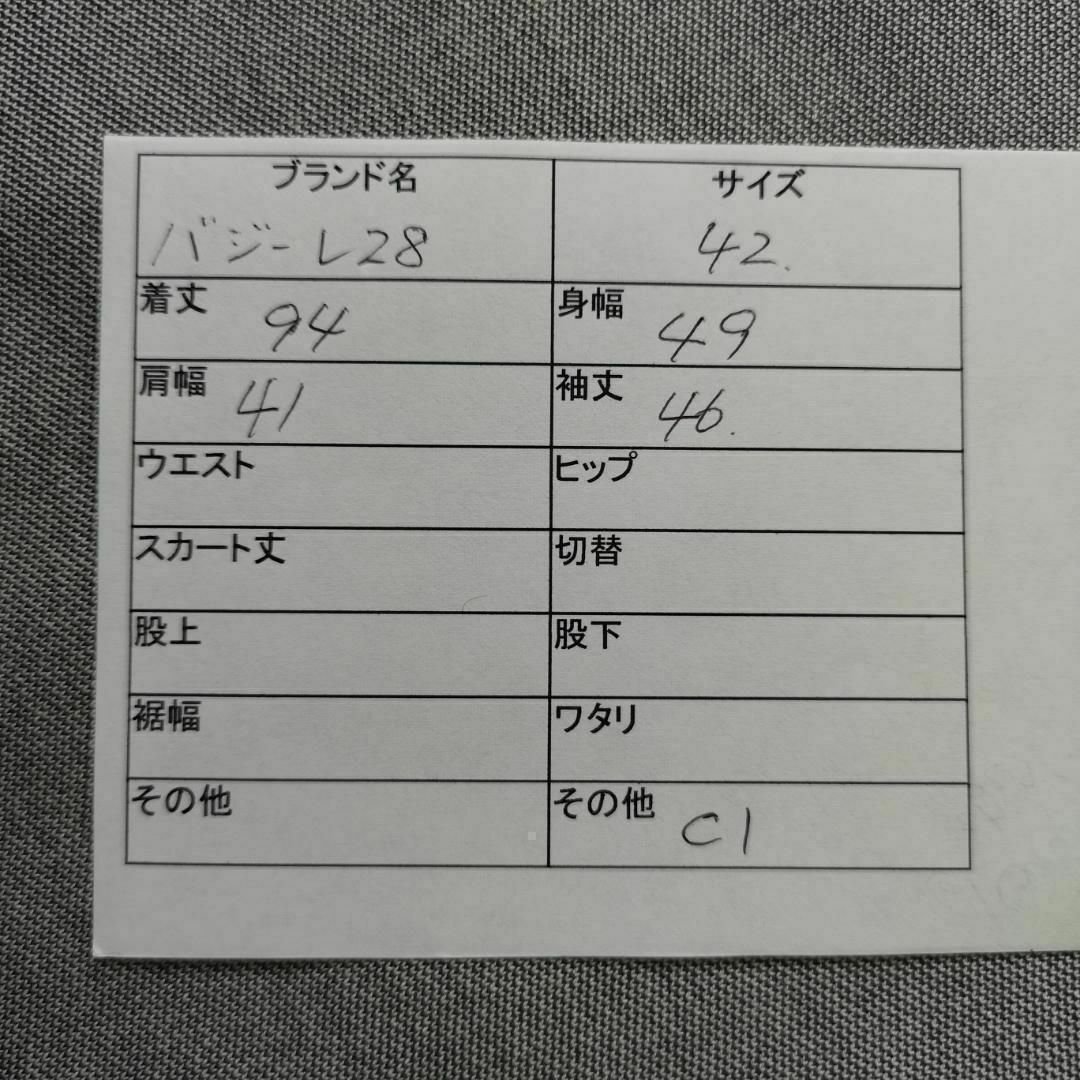 ブランド名 サイズ
バジーレ28 42.
着丈 94 身幅 49
肩幅 41 袖丈 46.
ウエスト ヒップ
スカート丈 切替
股上 股下
裾幅 ワタリ
その他 その他 C1